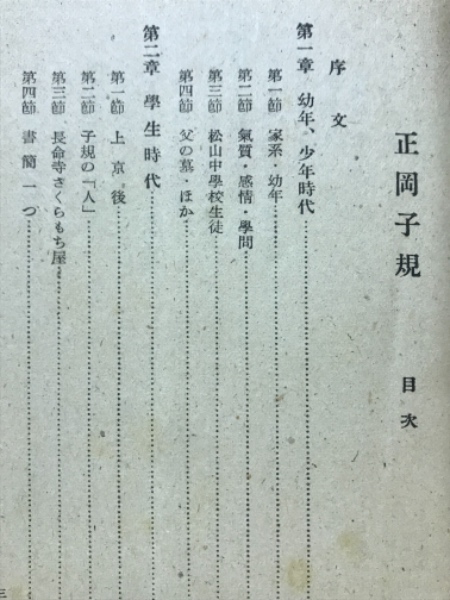 正岡子規　目次
序文
第一章　幼年、少年時代
第一節　家系・幼年
第二節　氣質・感情・學問
第三節　松山中學校生徒
第四節　父の墓・ほか
第二章　學生時代
第一節　上京後
第二節　子規の「人」
第三節　長命寺さくらもち屋
第四節　書簡一つ